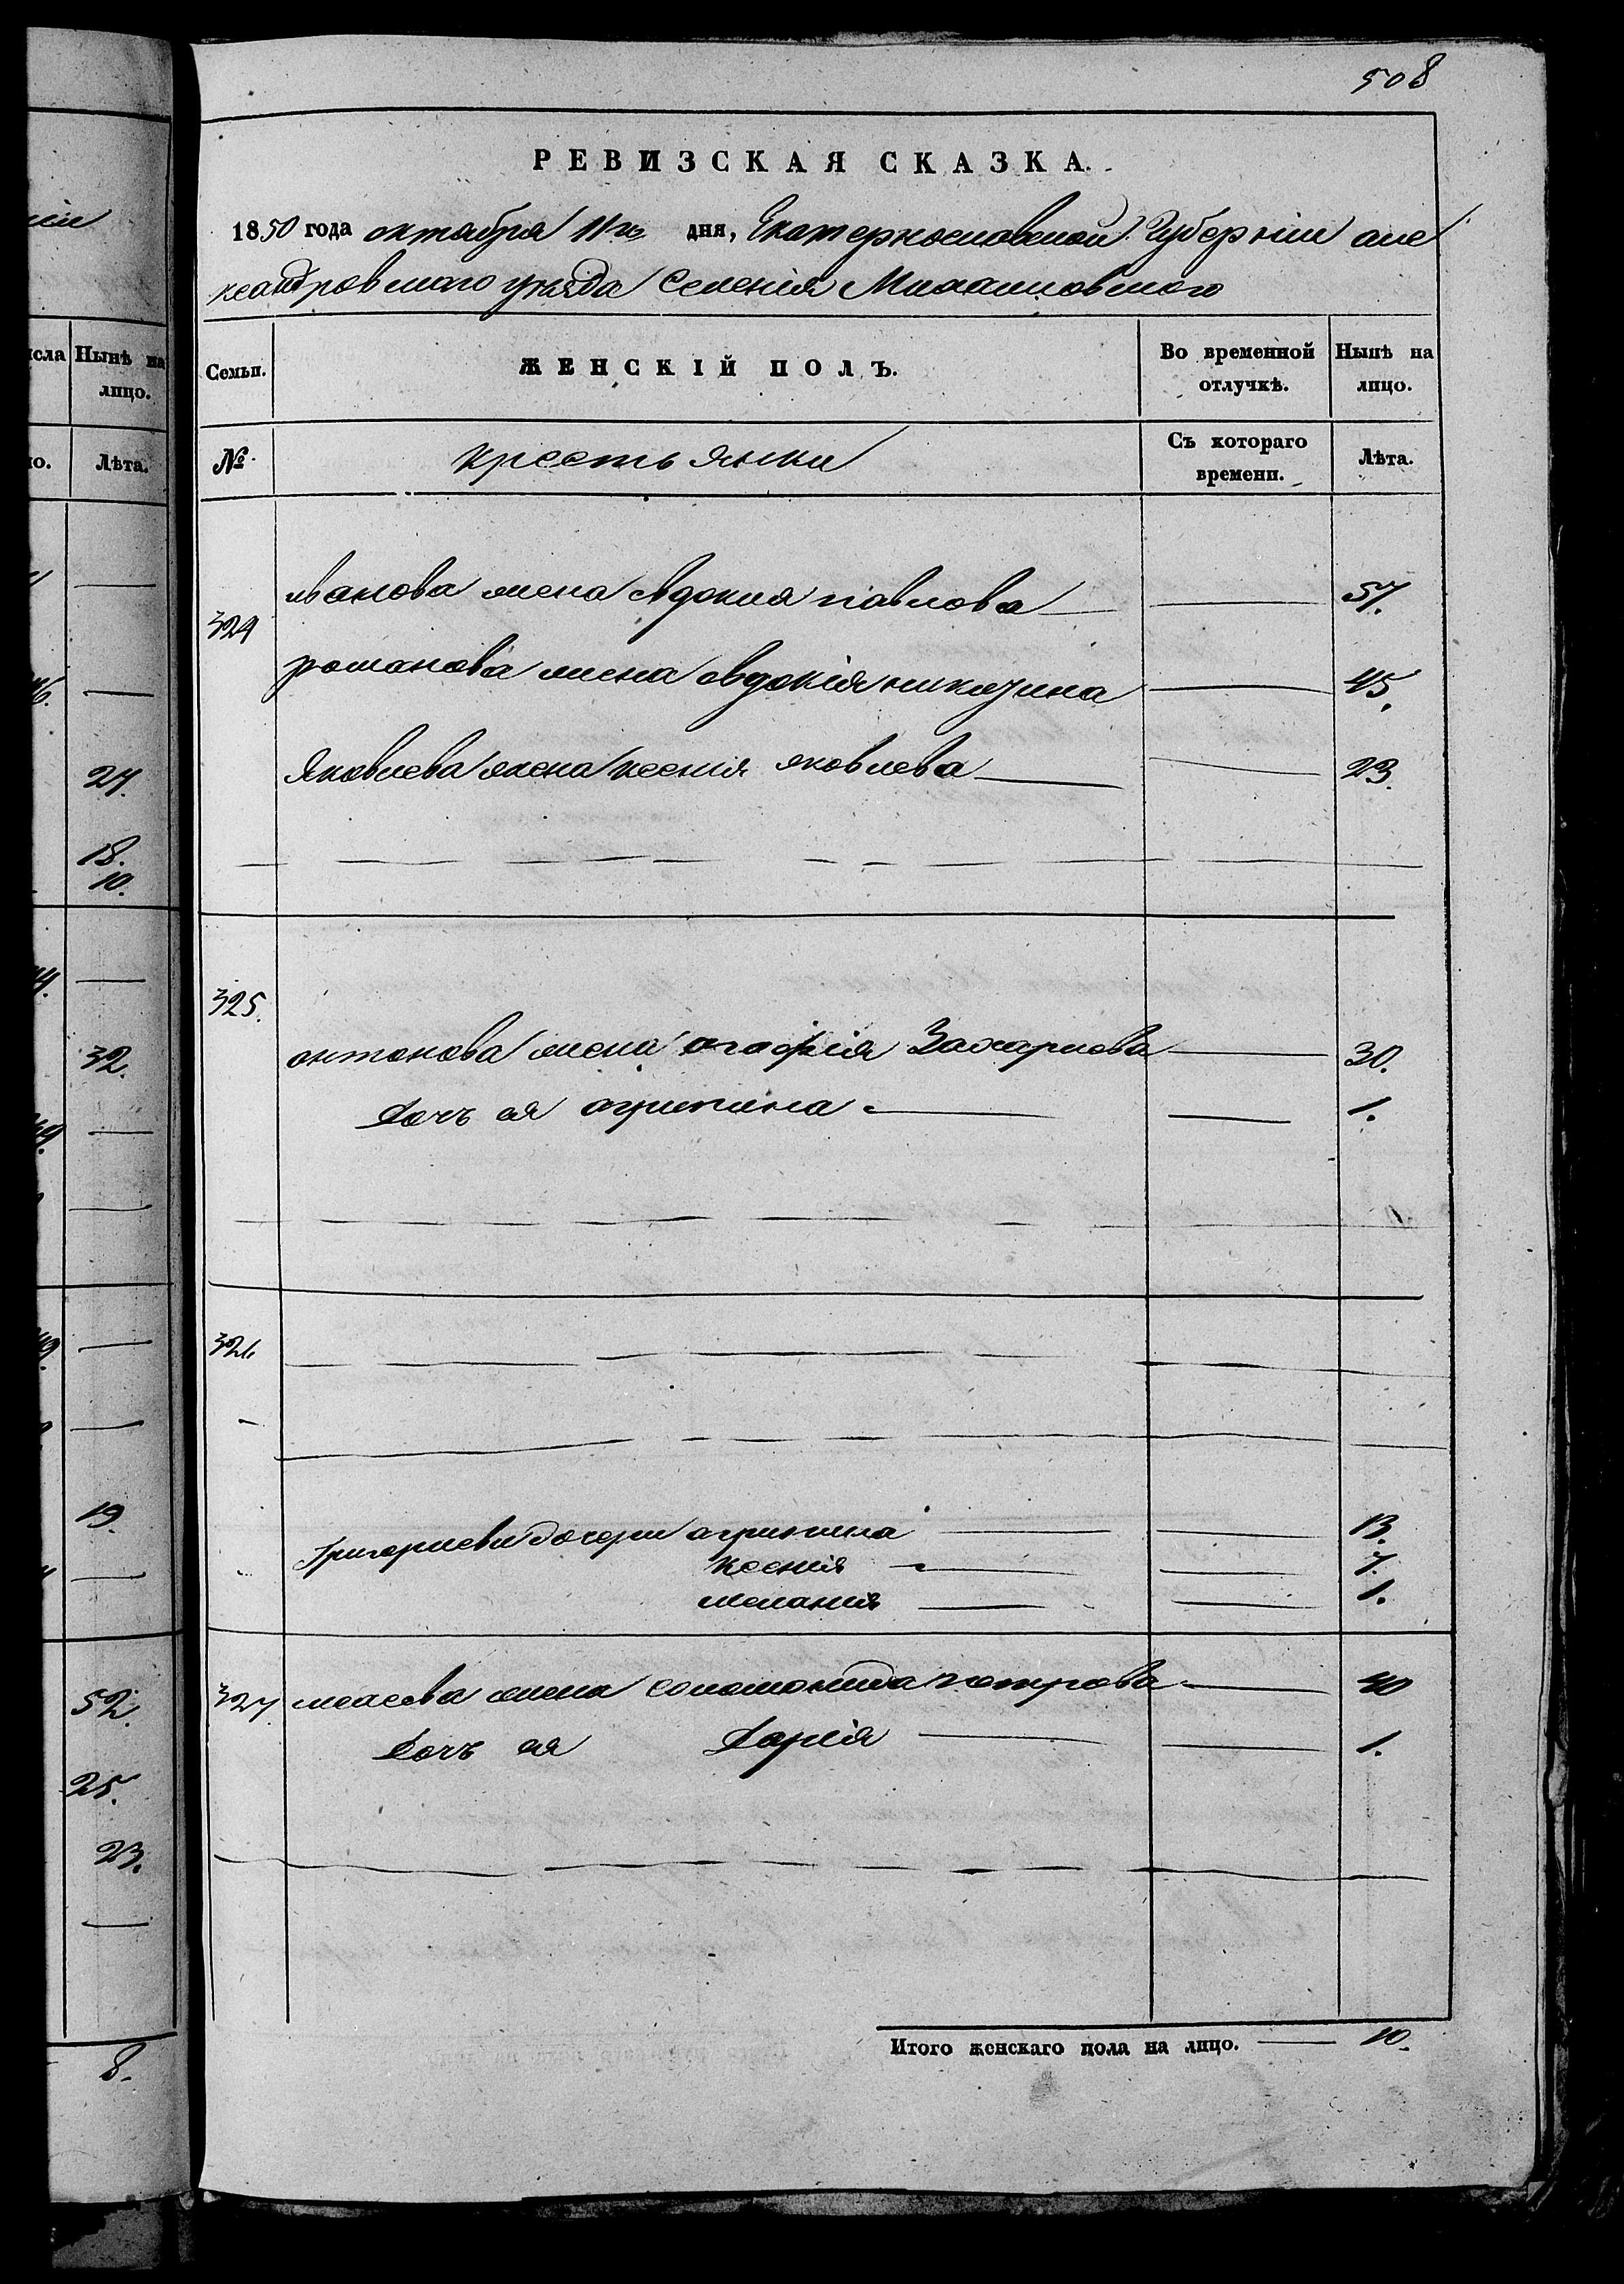 508
РЕВИЗСКАЯ СКАЗКА.
1850 года октября 11го дня, Екатеринославской Губерніи але
ксандровскаго уѣзда Селенія Михайловскаго
исла Нынѣ на лицо.
Лѣта.
27.
18.
10.
32.
19.
52.
25.
23.
8.
Семьи. ЖЕНСКІЙ ПОЛЪ. Во временной отлучкѣ. Нынѣ на лицо.
№ крестьянки Съ котораго времени. Лѣта.
324 иванова жена евдокия павлова 57.
романова жена евдокія никозина 45.
Яковлева жена ксенія яковлева 23.
325. антонова жена агафія Захариева 30.
дочь ея агрипина 1.
326
Григориеви дочери агрипина 13.
ксенія 7.
мелания 1.
327 жена соломонида петрова 40
дочь ея дарія 1.
Итого женскаго пола на лицо. 10.